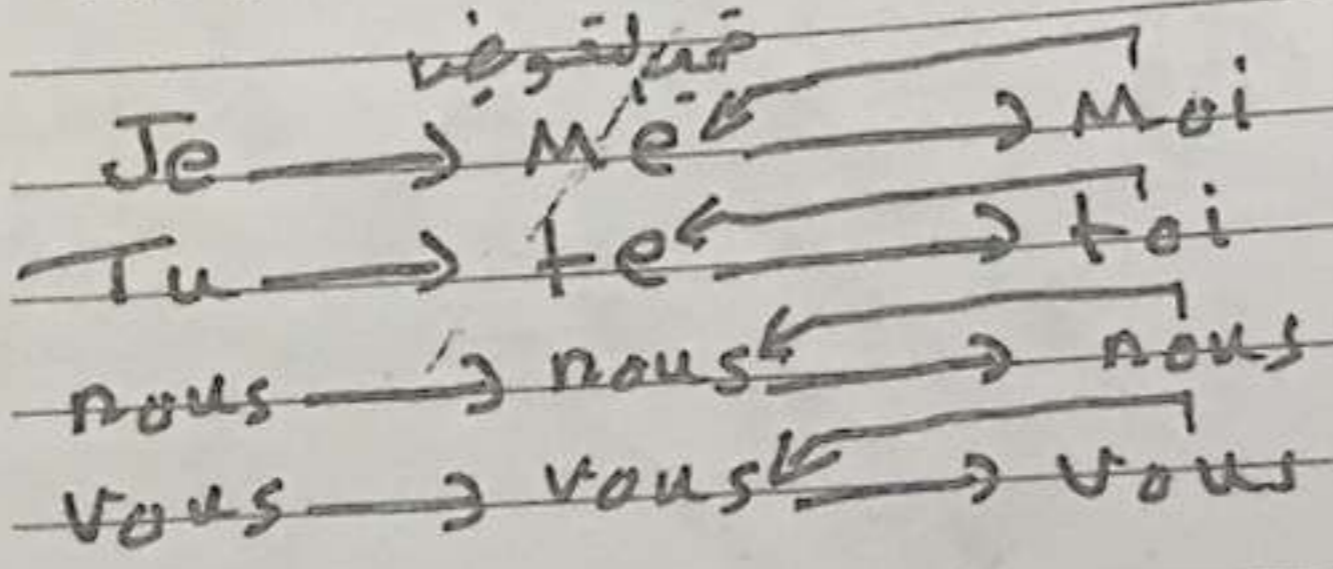 Je → Me → Moi
Tu → te → toi
nous → nous → nous
Vous → vous → vous